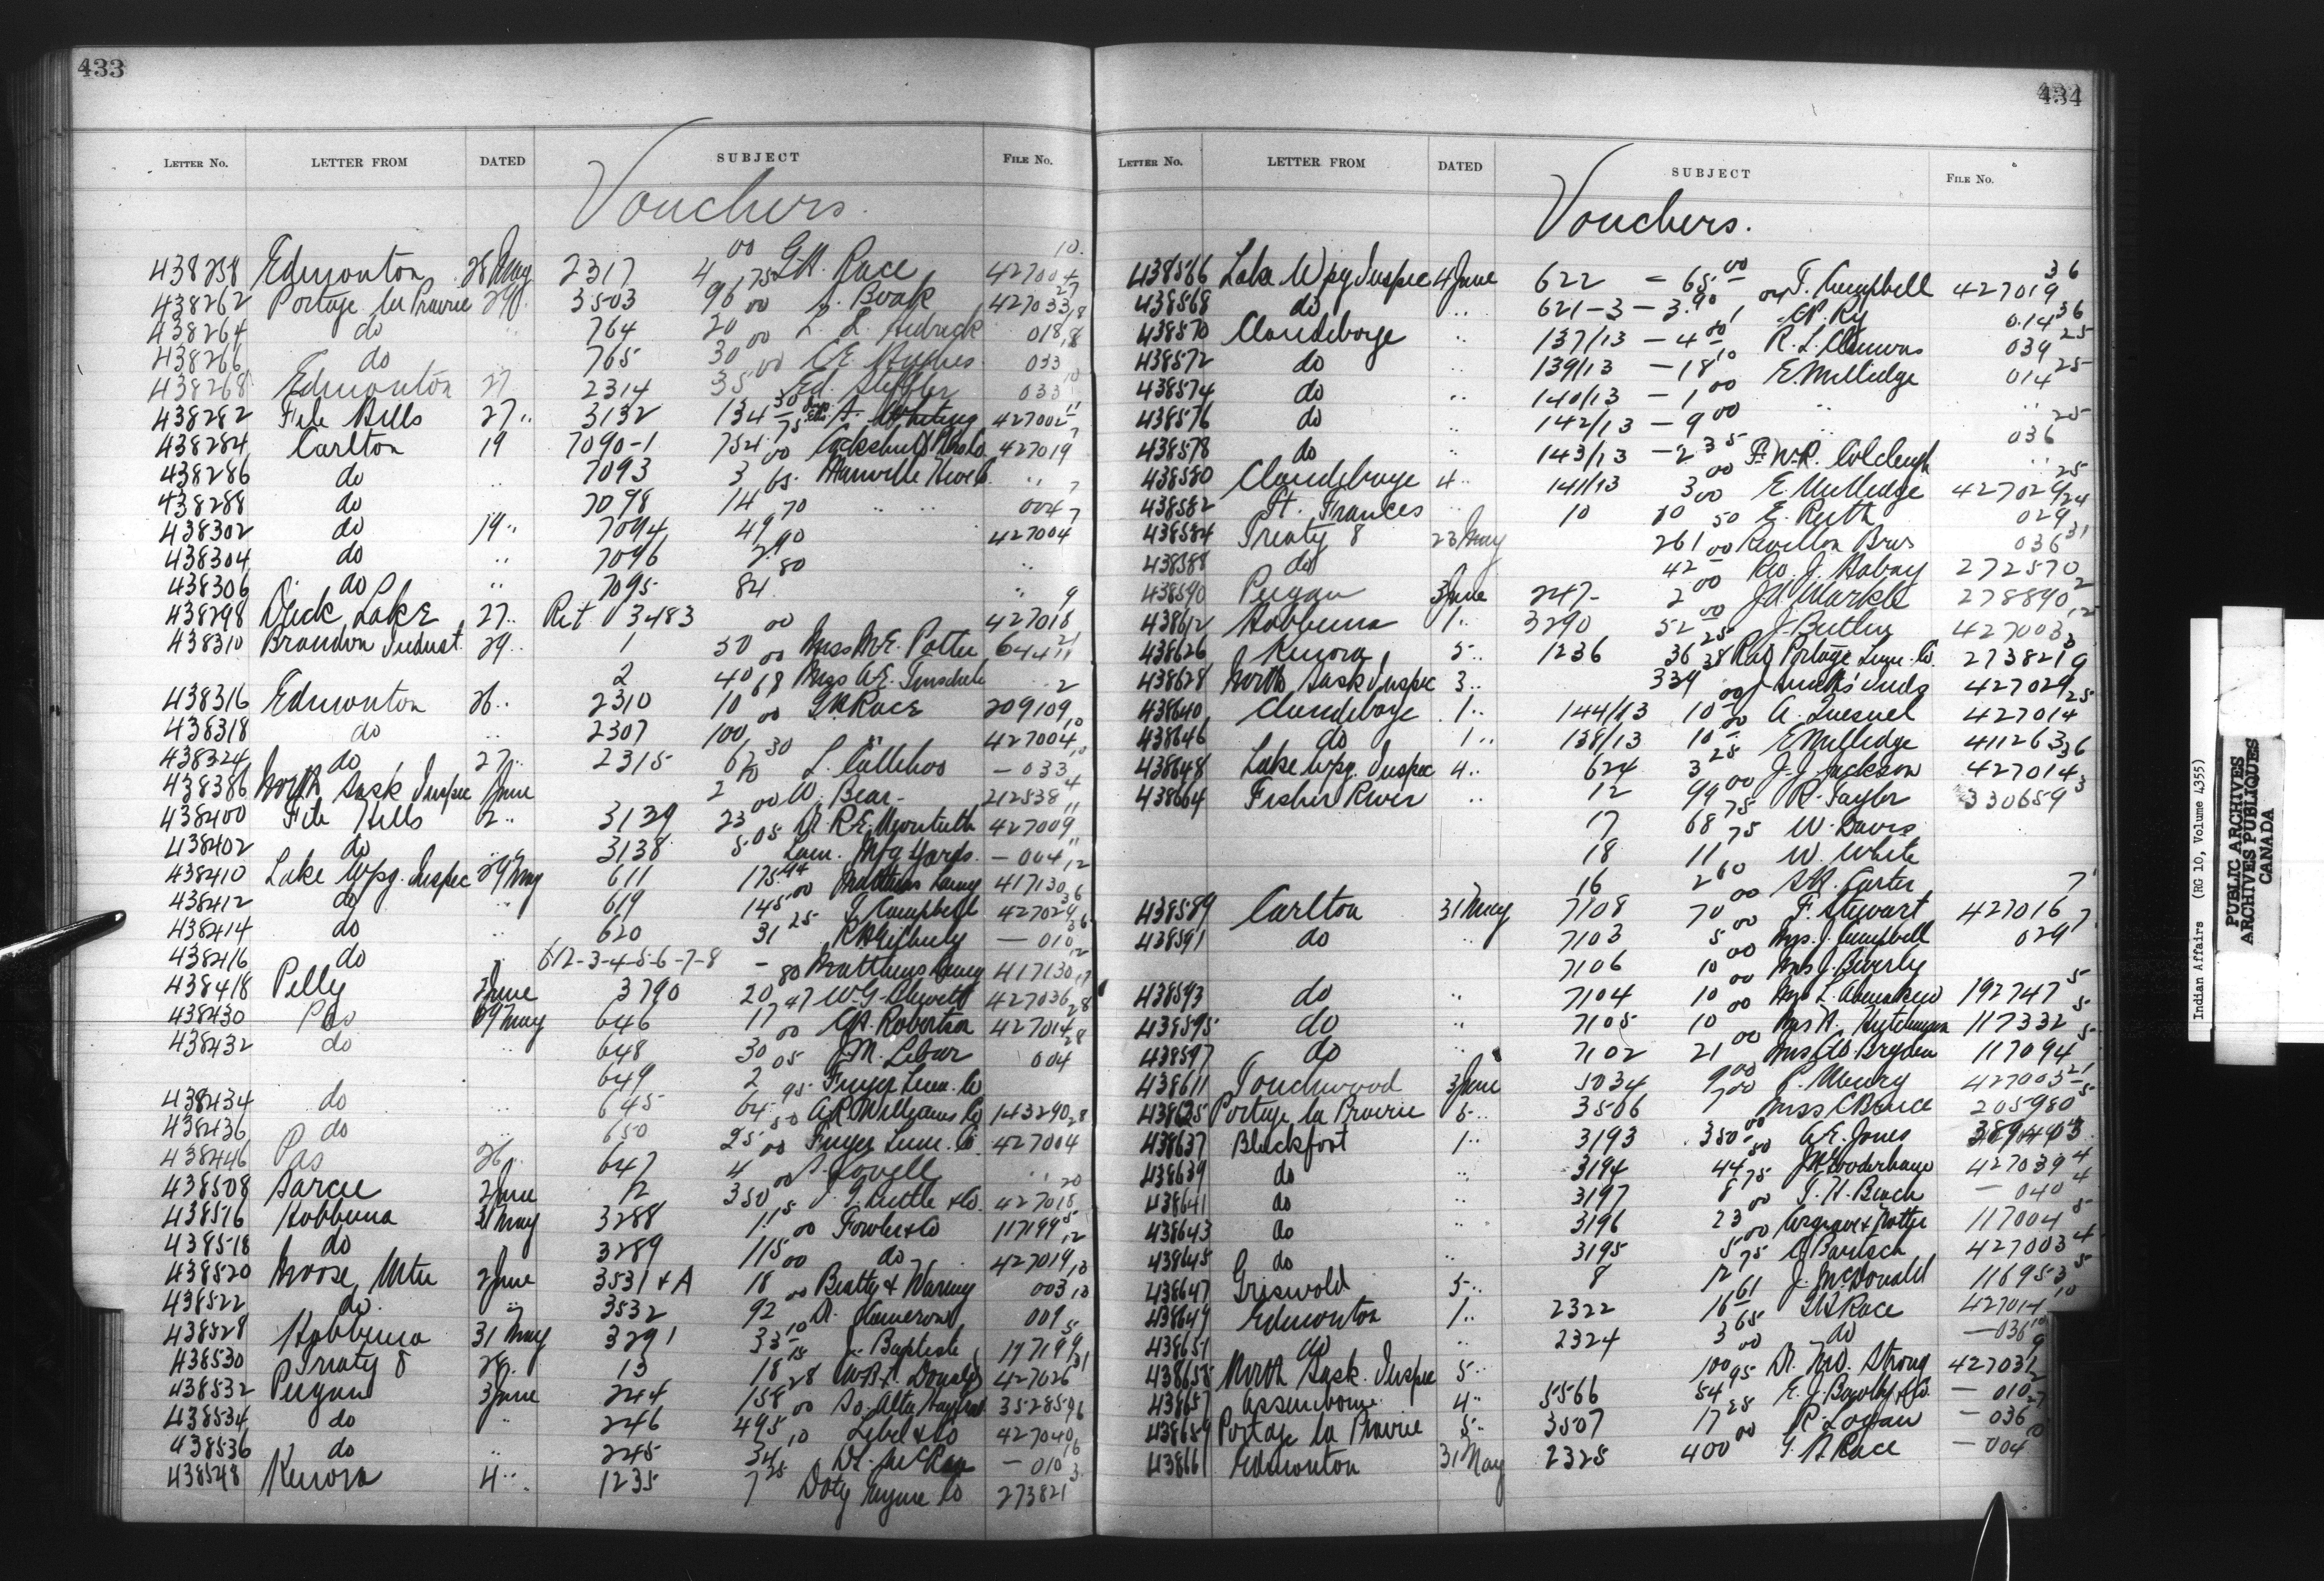 433
LETTER NO. LETTER FROM DATED SUBJECT FILE NO.
Vouchers.
438258 Edmonton 28 May 2317 4 00 G.H. Race 427004 10
438262 Portage la Prairie 29 3503 96 75 Boak 427033 27
438264 do 764 20 00 018
438266 do 765 30 00 033
438268 Edmonton 27 2314 35 00 Ed. 033
438282 File Hills 27 " 3132 134 30 427002 11
438284 Carlton 19 7090-1 754 75 Cockshutt 427019 7
438286 do " 7093 3 00 "
438288 do 7098 14 65 " " 004 7
438302 do 19 " 7094 49 70 427004 7
438304 do " 7096 2 90 "
438306 do " 7095 84 80 "
438298 Duck Lake 27 " Ret 3483 427018 9
438310 Brandon Indust. 29 " 1 50 00 Miss M.E. Potter
2 40 00 Miss
438316 Edmonton 26 " 2310 10 68 G.H. Race 209109 2
438318 do " 2307 100 00 " 427004 10
438324 do 27 " 2315 62 30 L. Callihoo - 033 10
438386 North Sask Inspec June 2 W. Bear 212538 4
438400 File Hills 2 " 3139 23 00 427009 11
438402 do " 3138 5 05 Lum. Mfg Yards - 004 11
438410 Lake Wpg. Inspec 29 May 611 175 94 Matthews Laing 417130 12
438412 do " 619 145 00 J. Campbell 427029 36
438414 do " 620 31 25 - 010 36
438416 do " 612-3-4-5-6-7-8 - Matthews Laing 417130 12
438418 Pelly 2 June 3790 20 80 W.G. Blewett 427036 17
438430 Pas 29 May 646 17 47 Robertson 427014 28
438432 do " 648 30 00 J.M. 004 28
649 2 05 Finger Lum. Co
438434 do " 645 64 95 A.R. Williams Co 143290 28
438436 do " 650 25 50 Finger Lum. Co 427004
438446 Pas 26 " 647 4 00 Lovell "
438508 Sarcee 2 June 12 350 00 Tuttle & Co. 427018 20
438516 Hobbema 31 May 3288 1 15 Fowler & Co 117199 5
438518 do 3289 115 00 do 427019 12
438520 Moose Mtn 2 June 3531 & A 18 00 Beatty & Waring 003 13
438522 do. " 3532 92 00 Cameron 009 13
438528 Hobbema 31 May 3291 33 10 J. Baptiste 197199 5
438530 Treaty 8 28 " 13 18 15 427026 31
438532 Peigan 3 June 244 158 28 So. Alta 352859
438534 do " 246 495 00 Lebel & Co 427040 16
438536 do " 245 34 10 Dr. - 010 16
438548 Kenora 4 " 1235 7 25 Doty Engine Co 273821 3
434
LETTER NO. LETTER FROM DATED SUBJECT FILE NO.
Vouchers.
438566 Lake Wpg Inspec 4 June 622 - 65 00 T. Campbell 427019 36
438568 do " 621-3 - 3.90 C.P. Ry 014 36
438570 Clandeboye " 137/13 - 4 00 R.L. Clemons 039 25
438572 do " 139/13 - 18 10 E. Milledge 014 25
438574 do " 140/13 - 1 00 " "
438576 do 142/13 - 9 00 036 25
438578 do " 143/13 - 2 35 F.W.R. Colcleugh "
438580 Clandeboye 4 " 141/13 3 00 E. Milledge 427029 25
438582 Ft. Frances " 10 10 00 E. Ruth 029 24
438584 Treaty 8 23 May 261 50 Revillon Bros 036 31
438588 do 42 00 Rev. J. 272570
438590 Peigan 3 June 247 - 2 00 J.A. Markle 278890 2
438612 Hobbema 1 " 3290 52 00 J. Butler 427003 12
438626 Kenora 5 " 1236 36 25 Rat Portage Lum. Co. 273821 3
438628 North Sask Inspec 3 " 339 38 427029 9
438640 Clandeboye 1 " 144/13 10 00 A. Quesnel 427014 25
438646 do 1 " 138/13 10 E. Milledge 411263
438648 Lake Wpg. Inspec 4 " 624 3 25 J.J. Jackson 427014 36
438664 Fisher River " 12 99 00 R. Taylor 330659 3
17 68 75 W. Davis
18 11 75 W. White
16 2 60 Carter
438589 Carlton 31 May 7108 70 00 F. Stewart 427016 7
438591 do " 7103 5 00 Mrs. J. Campbell 029 7
7106 10 00 Mrs J. Beverly
438593 do " 7104 10 00 Mrs L. 192747 5
438595 do " 7105 10 00 Mrs A. Hutchinson 117332 5
438597 do " 7102 21 00 Mrs Bryden 117094 5
438611 Touchwood 3 June 5034 9 00 427005 21
438625 Portage la Prairie 5 " 3506 7 00 Miss C Bruce 205980 5
438637 Blackfoot 1 " 3193 350 00 A.E. Jones
438639 do " 3194 44 50 Gooderham 427039 4
438641 do " 3197 8 75 T.H. Beach - 040 4
438643 do " 3196 23 00 117004 5
438645 do " 3195 5 00 Bartsch 427003 4
438647 Griswold 5 " 8 12 75 J. McDonald 116953 5
438649 Edmonton 1 " 2322 16 61 G.H. Race 427014 10
438651 do " 2324 3 65 do - 036 10
438655 North Sask. Inspec 5 " 100 00 Dr. Strong 427031 9
438657 Assiniboine 4 " 5566 54 95 - 010
438659 Portage la Prairie 5 " 3507 17 28 R. Logan - 036 27
438661 Edmonton 31 May 2325 400 00 G.H. Race - 004 10
Indian Affairs (RG 10, Volume 4355)
PUBLIC ARCHIVES
ARCHIVES PUBLIQUES
CANADA